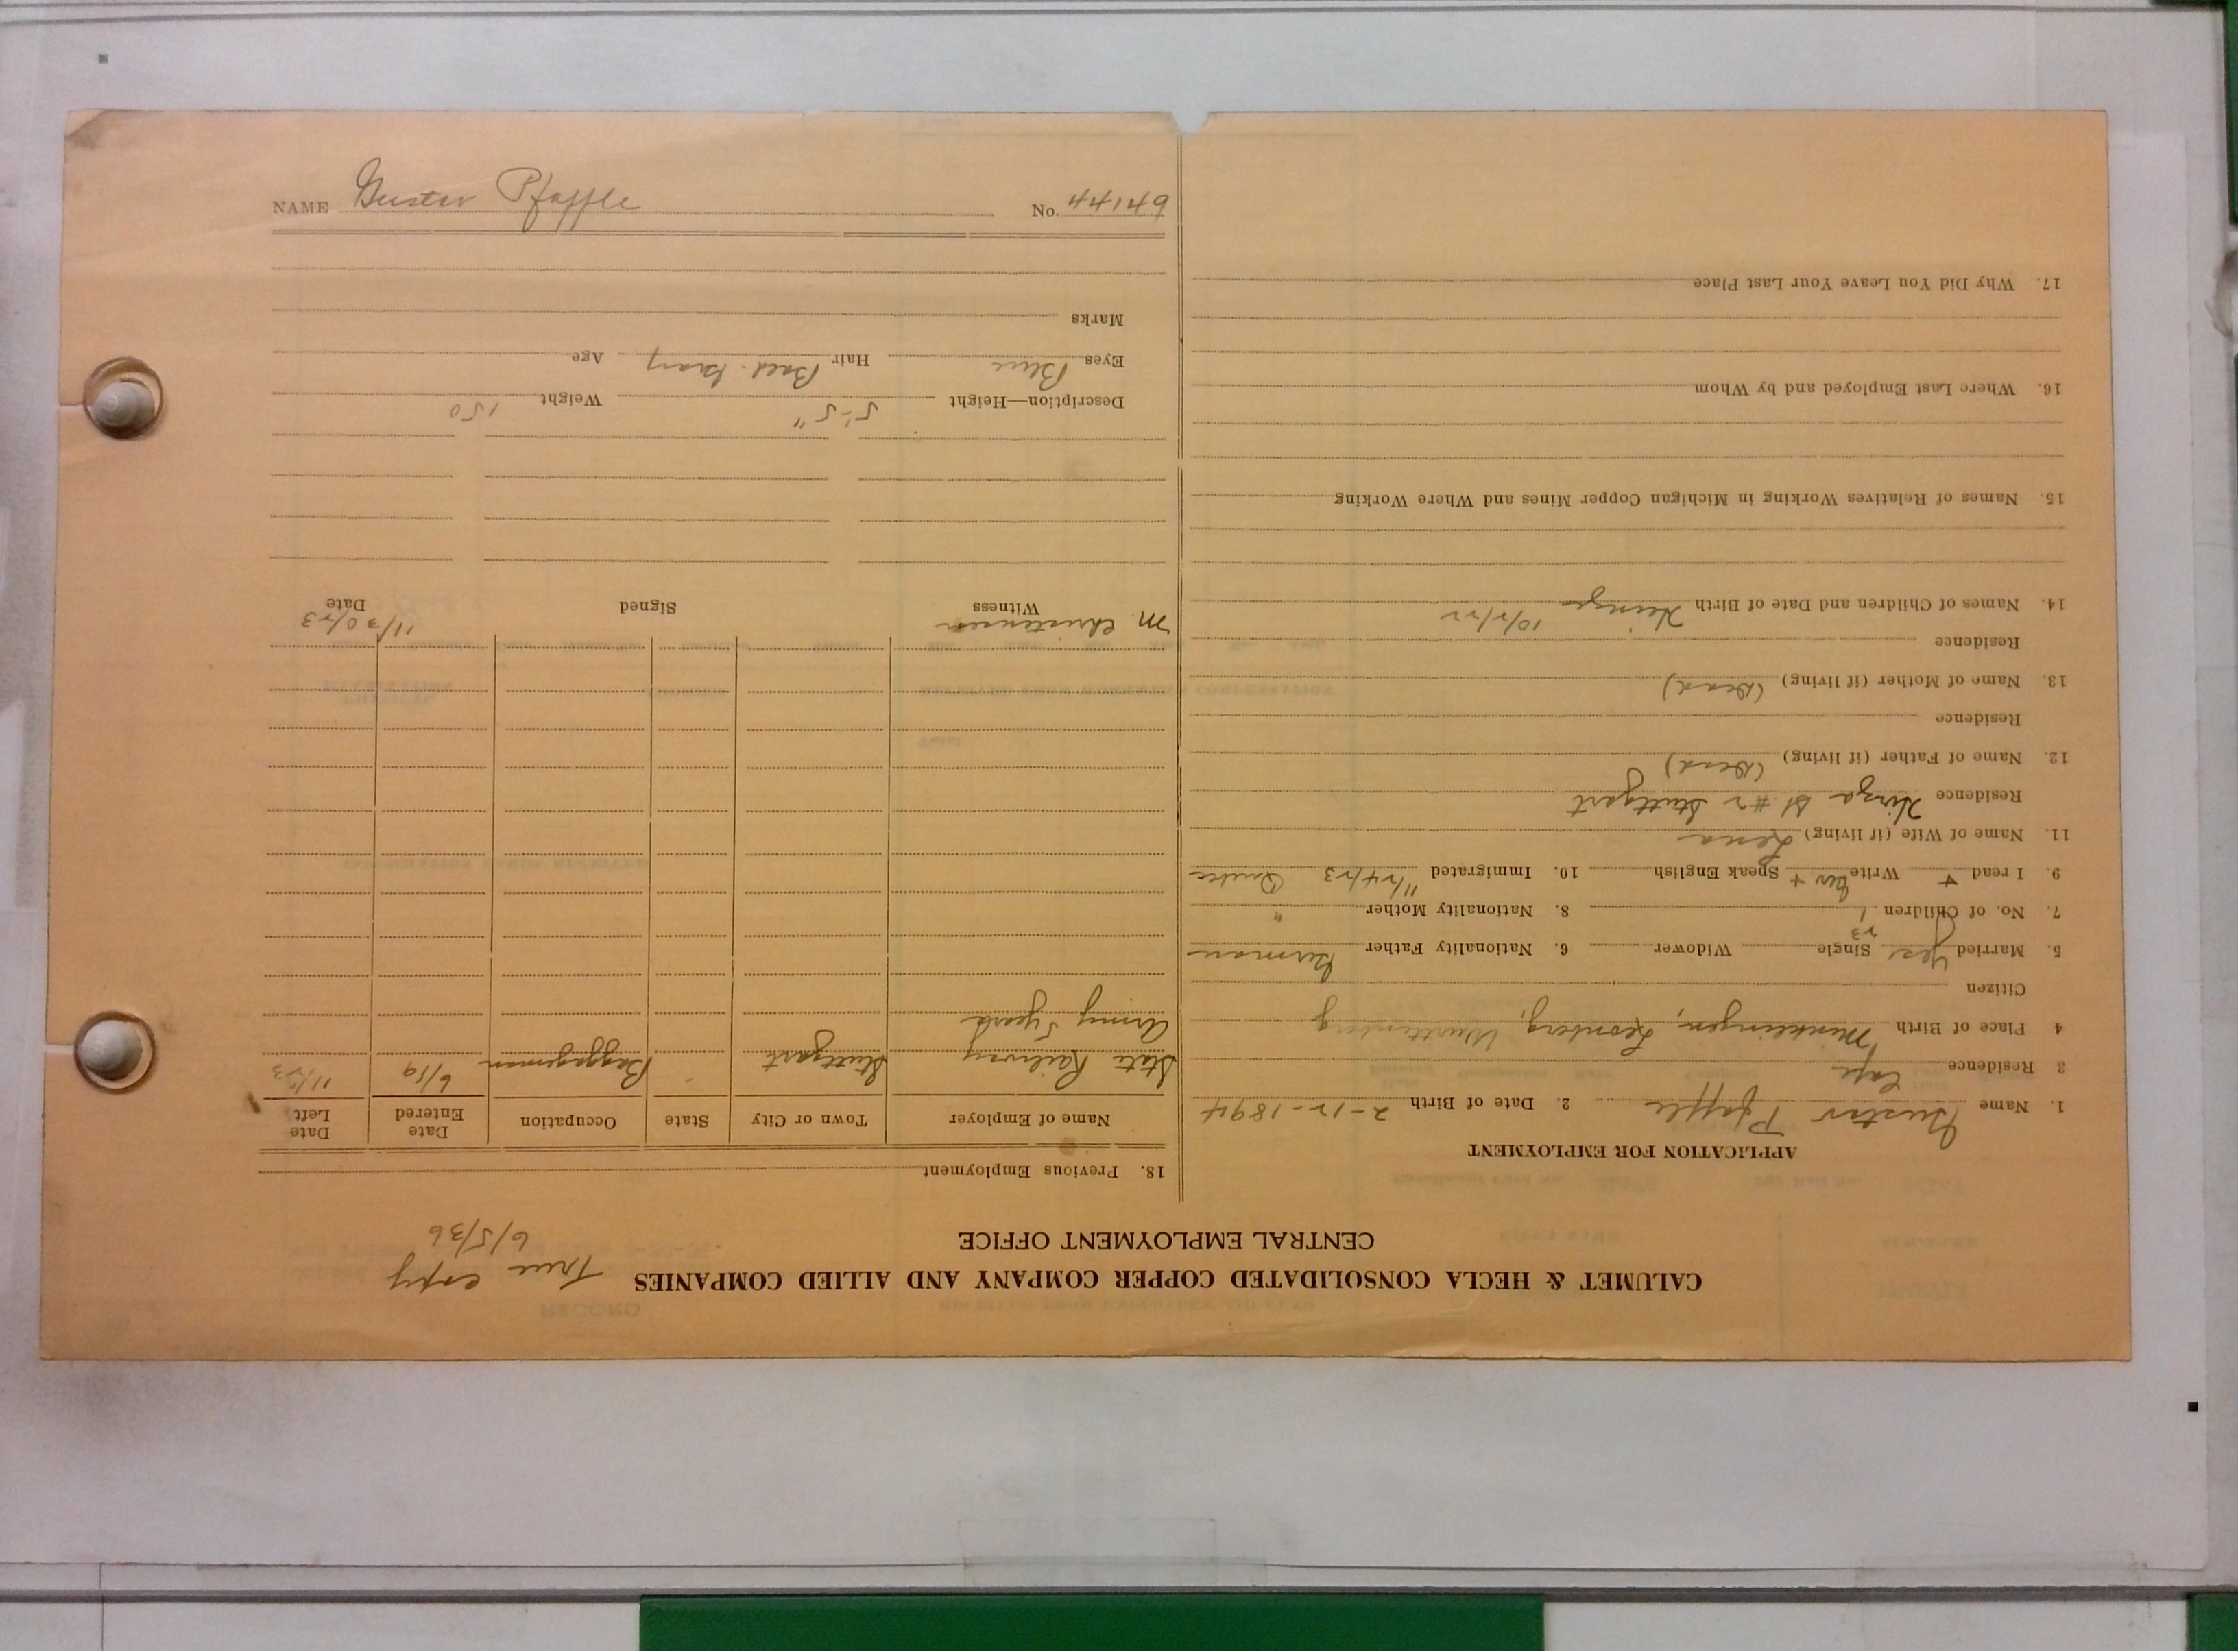 NAME Gustav Pfaffle No. 44149
CALUMET & HECLA CONSOLIDATED COPPER COMPANY AND ALLIED COMPANIES
True copy
6/5/36
CENTRAL EMPLOYMENT OFFICE
APPLICATION FOR EMPLOYMENT
1. Name Gustav Pfaffle 2. Date of Birth 2-12-1894
3 Residence
4 Place of Birth Munklingen, Leonberg, Wurttenberg
Citizen
5. Married Yes Single Widower 6. Nationality Father German
23
7. No. of Children 1 8. Nationality Mother "
9. I read + Write Ger + Speak English 10. Immigrated 11/24/23
11. Name of Wife (if living) Lena
Residence St #2 Stuttgart
12. Name of Father (if living) (Dead)
Residence
13. Name of Mother (if living) (Dead)
Residence
14. Names of Children and Date of Birth 10/2/22
15. Names of Relatives Working in Michigan Copper Mines and Where Working
16. Where Last Employed and by Whom
17. Why Did You Leave Your Last Place
18. Previous Employment
Name of Employer Town or City State Occupation Date Entered Date Left
State Railway Stuttgart Baggageman 6/19
Army 5 years
M. Christensen 11/30/23
Witness Signed Date
Description—Height 5'-5" Weight 150
Eyes Blue Hair Bald-Gray Age
Marks